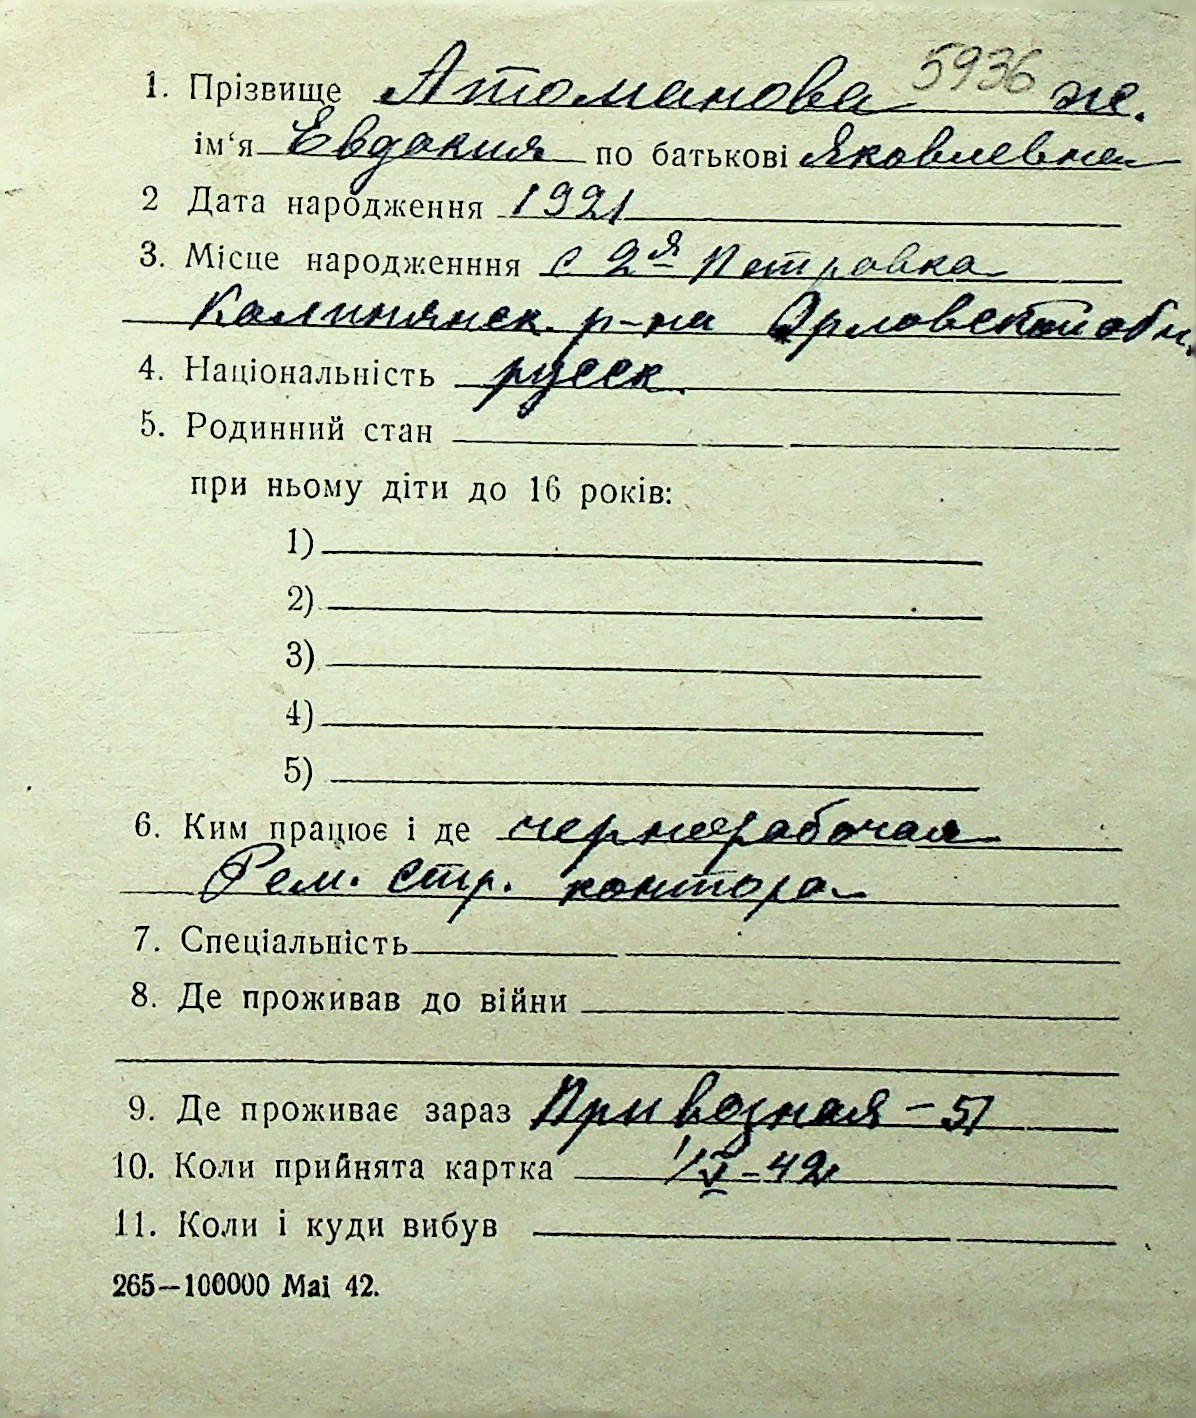 1. Прізвище Атоманова 5936 ж.
ім'я Евдокия по батькові Яковлевна
2 Дата народження 1921
3. Місце народженння с 2я Петровка
Калинянск. р-на Орловской обл.
4. Національність русск.
5. Родинний стан
при ньому діти до 16 років:
1)
2)
3)
4)
5)
6. Ким працює і де чернорабочая
Рем. стр. контора
7. Спеціальність
8. Де проживав до війни
9. Де проживає зараз Привозная – 51
10. Коли прийнята картка 1/V-42
11. Коли і куди вибув
265—100000 Mai 42.